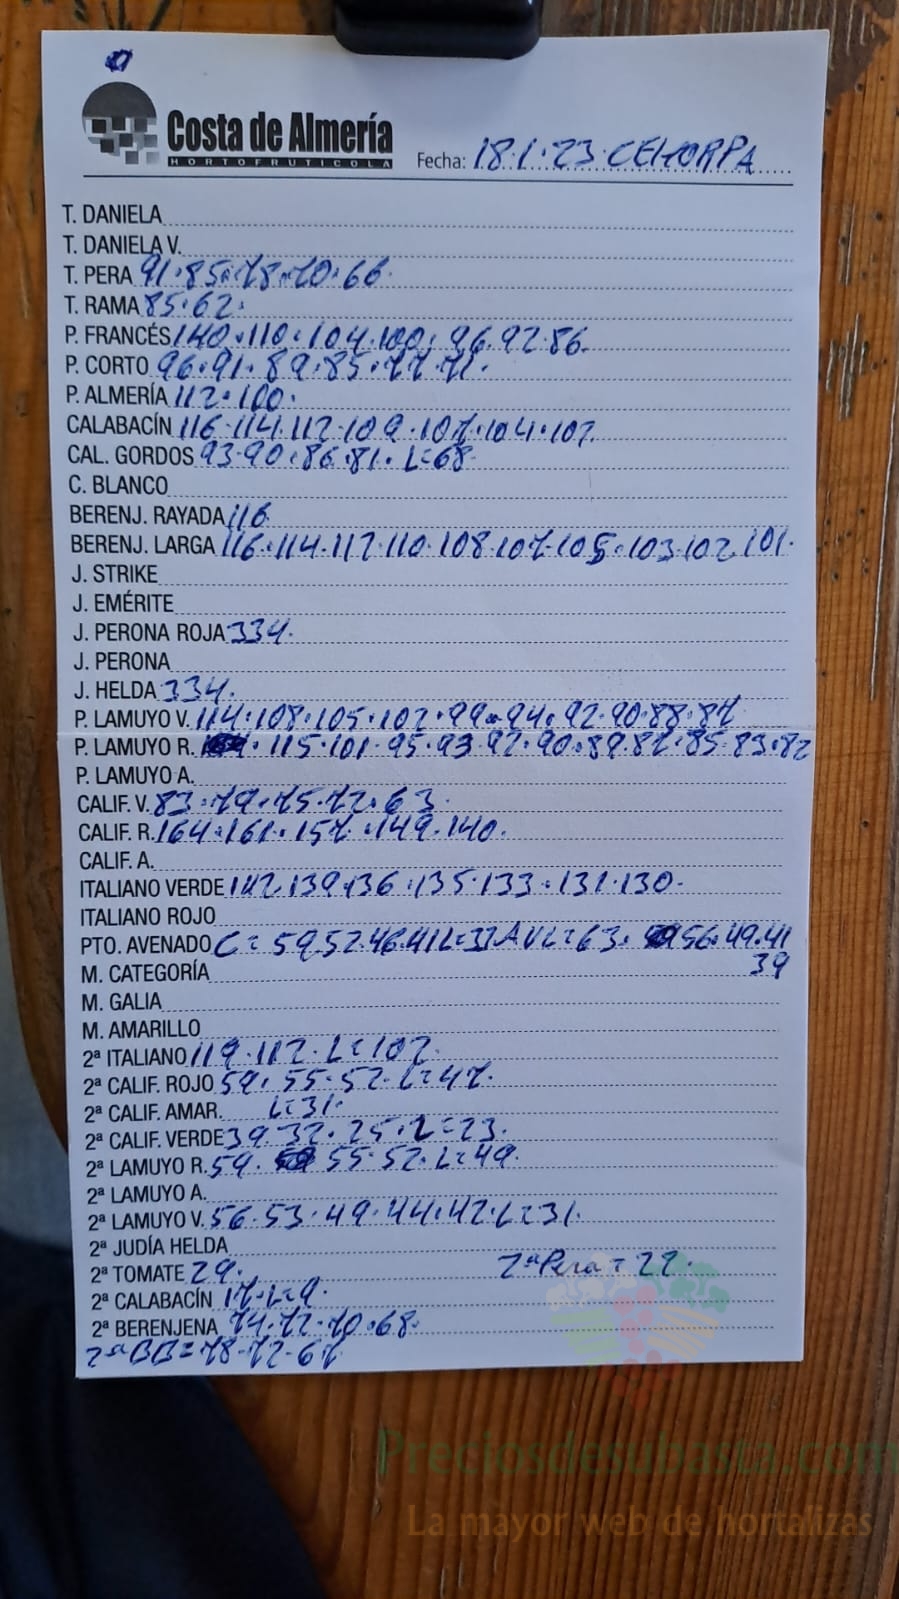 Costa de Almería
HORTOFRUTICOLA
Fecha: 18.1.23 CEHORPA
T. DANIELA
T. DANIELA V.
T. PERA 91.85.78.70.66.
T. RAMA 85.62.
P. FRANCÉS 140.110.104.100.96.92.86.
P. CORTO 96.91.89.85.77.71.
P. ALMERÍA 112.100.
CALABACÍN 116.114.112.109.107.104.102.
CAL. GORDOS 93.90.86.81. L=68.
C. BLANCO
BERENJ. RAYADA 116
BERENJ. LARGA 116.114.112.110.108.107.105.103.102.101.
J. STRIKE
J. EMÉRITE
J. PERONA ROJA 334.
J. PERONA
J. HELDA 334.
P. LAMUYO V. 114.108.105.102.99.94.92.90.88.87
P. LAMUYO R. 115.101.95.93.92.90.89.87.85.83.82
P. LAMUYO A.
CALIF. V. 83.79.75.72.63.
CALIF. R. 164.161.157.149.140.
CALIF. A.
ITALIANO VERDE 142.139.136.135.133.131.130.
ITALIANO ROJO
PTO. AVENADO C=59.52.46.41 L=37 AVL=63. 56.49.41
39
M. CATEGORÍA
M. GALIA
M. AMARILLO
2ª ITALIANO 119.112. L=102.
2ª CALIF. ROJO 59.55.52. L=47.
2ª CALIF. AMAR. L=31.
2ª CALIF. VERDE 39.32.25. L=23.
2ª LAMUYO R. 59. 55.52. L=49.
2ª LAMUYO A.
2ª LAMUYO V. 56.53.49.44.42. L=31.
2ª JUDÍA HELDA
2ª TOMATE 29. 2ª Pera = 22.
2ª CALABACÍN 17. L=9.
2ª BERENJENA 74.72.70.68.
2ª BB=78.72.67
Preciosdesubasta.com
La mayor web de hortalizas